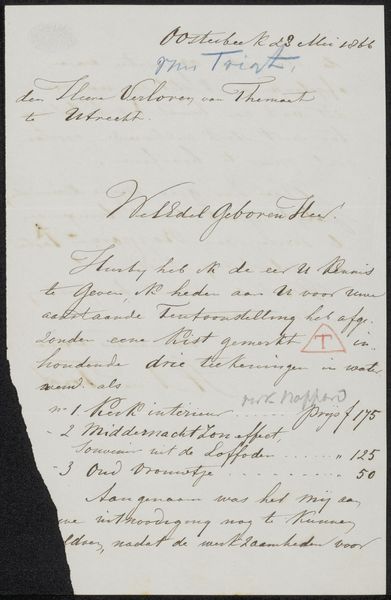 Oosterbeek d 3 Mei 1866
van Trigt.
den Heere Verloren van Themaat
te Utrecht.
WelEdel Geboren Heer.
Hierby heb ik de eer U kennis
te Geven, ik heden aan U voor uwe
aanstaande Tentoonstelling heb afge
zonden eene Kist gemerkt T in
houdende drie teekeningen in water
verw. als
no 1 Kerk interieur ........ Prys f 175
- 2 Middernacht Zon effect,
Souvenir uit de Loffoden ..... " 125
- 3 Oud Vrouwtje ........ " 50
Aangenaam was het mij aan
uwe uitnoodiging nog te kunnen
voldoen, nadat de werkzaamheden voor